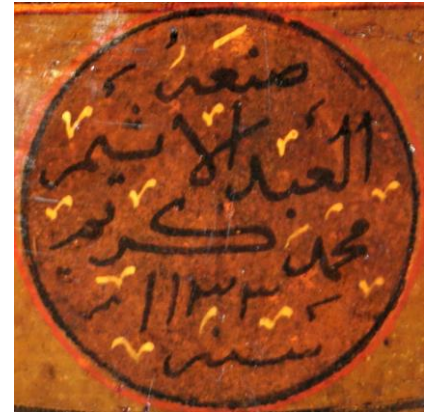 صنعه
العبد الاثيم
محمد كريم
١١٣٣
سنه